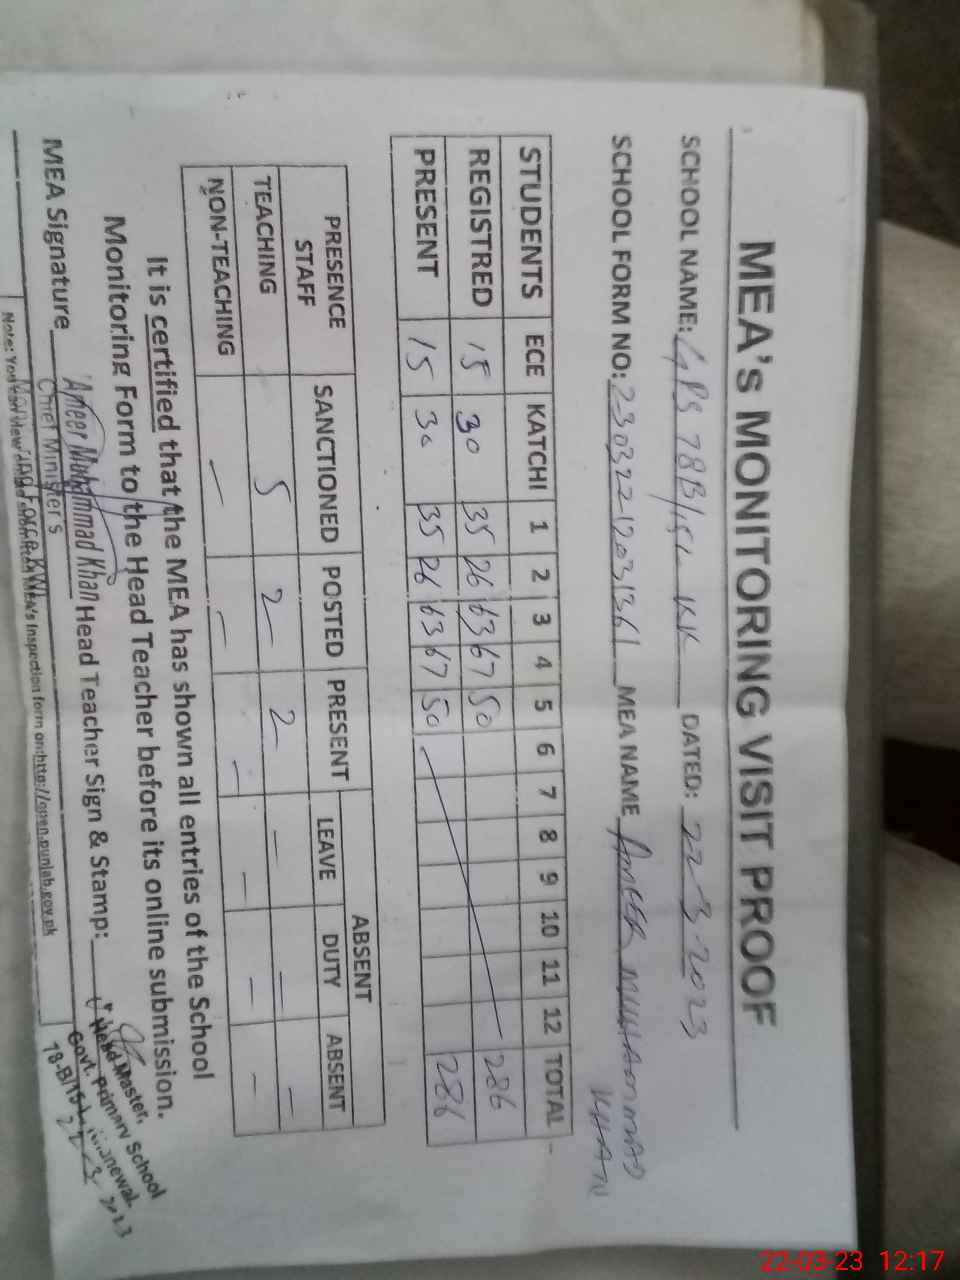 MEA's MONITORING VISIT PROOF
SCHOOL NAME: GPS 78B/15L KK DATED: 22-3-2023
SCHOOL FORM NO: 230322-12031361 MEA NAME AMEER MUHAMMAD KHAN
STUDENTS ECE KATCHI 1 2 3 4 5 6 7 8 9 10 11 12 TOTAL
REGISTRED 15 30 35 26 63 67 50 286
PRESENT 15 30 35 26 63 67 50 286
PRESENCE STAFF SANCTIONED POSTED PRESENT ABSENT
LEAVE DUTY ABSENT
TEACHING 5 2 2 — — —
NON-TEACHING — — — — — —
It is certified that the MEA has shown all entries of the School
Monitoring Form to the Head Teacher before its online submission.
MEA Signature Ameer Muhammad Khan Head Teacher Sign & Stamp:
Chief Minister's
Head Master,
Govt. Primary School
22-3-2023
Note: You can view MEA's Inspection form on:http://open.punjab.gov.pk
22-03-23 12:17